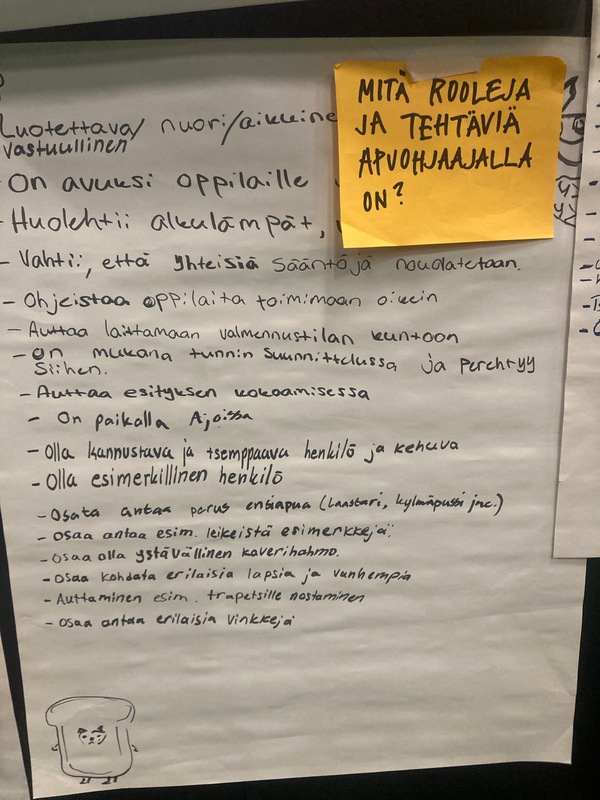 MITÄ ROOLEJA
JA TEHTÄVIÄ
APUOHJAAJALLA
ON?
Luotettava/ nuori/aikuine
vastuullinen
- On avuksi oppilaille
- Huolehtii alkulämpät,
- Vahtii, että yhteisiä sääntöjä noudatetaan.
- Ohjeistaa oppilaita toimimaan oikein
- Auttaa laittamaan valmennustilan kuntoon
- On mukana tunnin suunnittelussa ja perehtyy
siihen.
- Auttaa esityksen kokoamisessa
- On paikalla Ajoissa
- Olla kannustava ja tsemppaava henkilö ja kehuva
- Olla esimerkillinen henkilö
- Osata antaa perus ensiapua (laastari, kylmäpussi jne.)
- osaa antaa esim. leikeistä esimerkkejä.
- osaa olla ystävällinen kaverihahmo.
- osaa kohdata erilaisia lapsia ja vanhempia
- Auttaminen esim. trapetsille nostaminen
- osaa antaa erilaisia vinkkejä